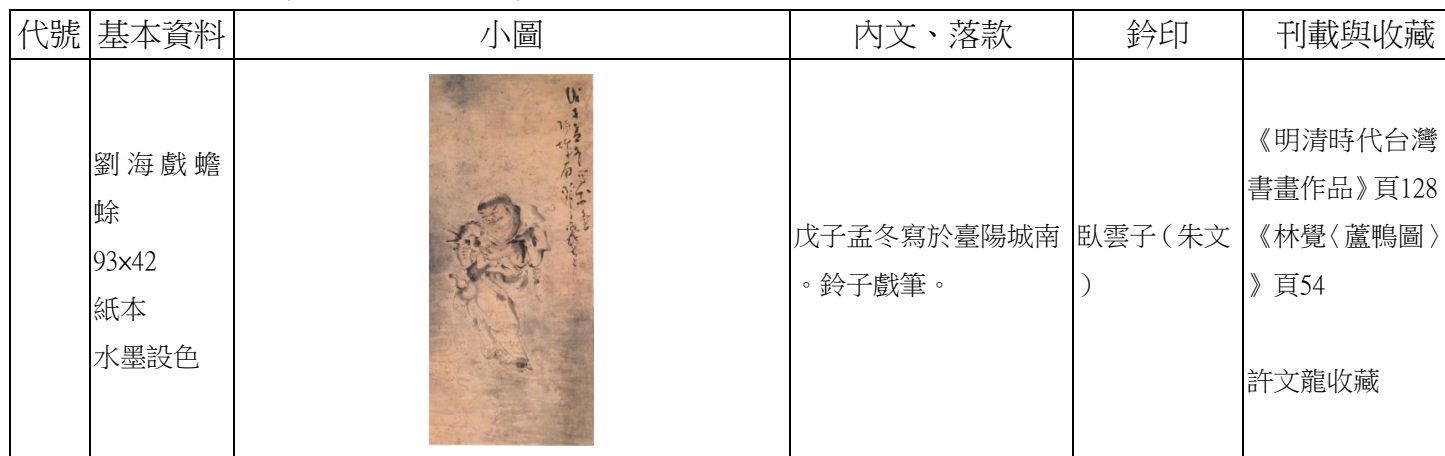 代號 基本資料 小圖 內文、落款 鈐印 刊載與收藏
劉海戲蟾
蜍
93×42
紙本
水墨設色
戊子孟冬寫於臺陽城南
。鈴子戲筆。
臥雲子(朱文
)
《明清時代台灣
書畫作品》頁128
《林覺〈蘆鴨圖〉
》頁54
許文龍收藏